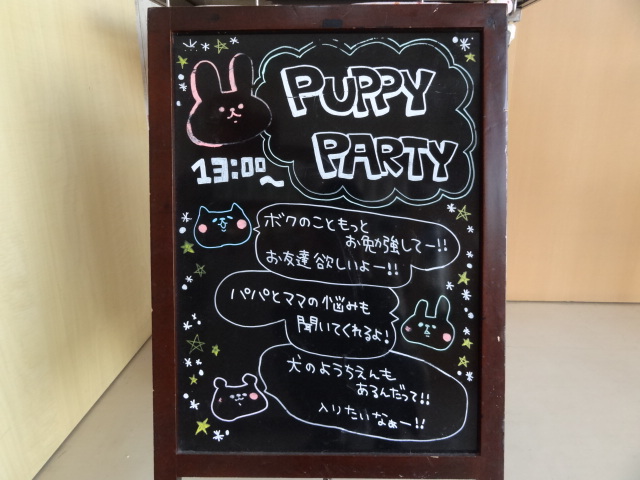 PUPPY
PARTY
13:00~
ボクのこともっと
お勉強してー!!
お友達欲しいよー!!
パパとママの悩みも
聞いてくれるよ!
犬のようちえんも
あるんだって!!
入りたいなぁー!!